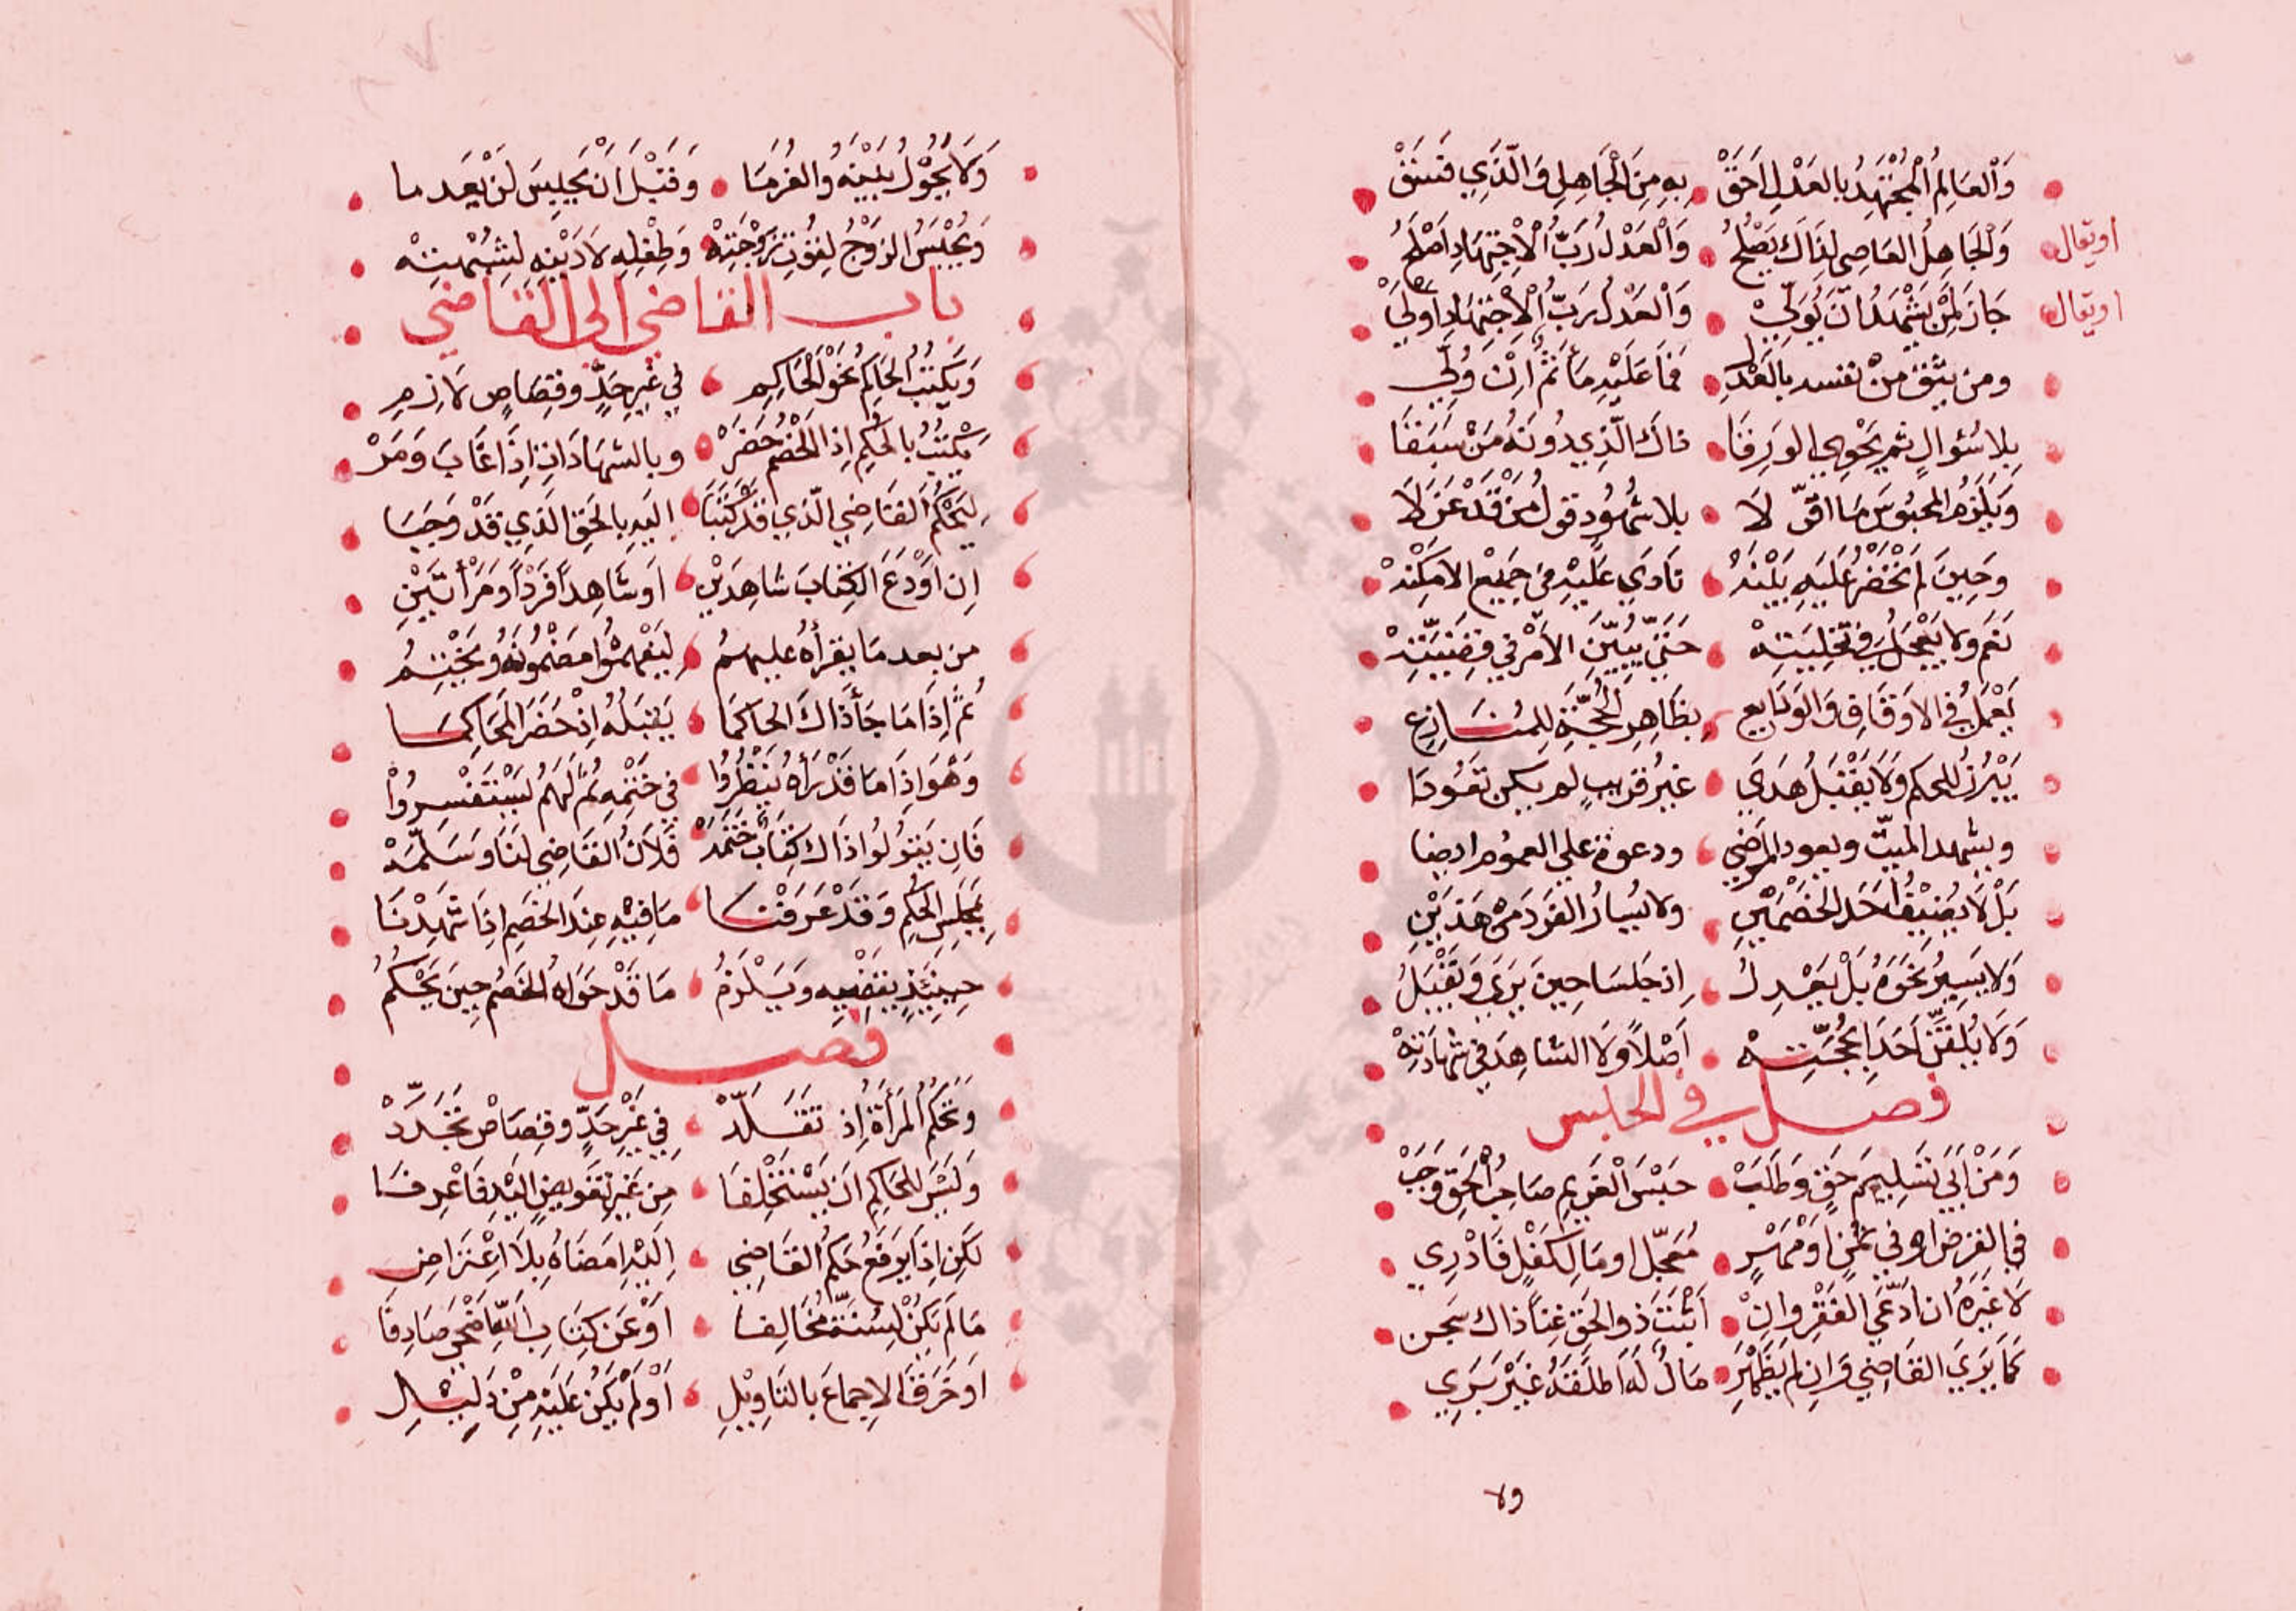 وَالْعَالِمُ الْمُجْتَهِدُ بِالعَدْلِ اَحَقْ بِهِ مِنَ الْجَاهِلِ وَالَّذِي فَسَقْ
اويقال وَالْجَاهِلُ العَاصِي لِذَاكَ يَصْلُحُ وَالْعَدْلُ رَبُّ الْاِجْتِهَادِ اَصْلَحُ
اويقال جَازَ لِمَنْ يَشْهَدُ اَنْ يُوَلَّى وَالْعَدْلُ رَبُّ الْاِجْتِهَادِ اَوْلَى
ومن يثق مِنْ نفسه بالعَدْلِ فَمَا عَلَيْهِ مَأثَمٌ اِنْ وُلِّي
بلا سُؤالٍ ثم يَحْوِي الورقَا ذاكَ الَّذِي دُونَهُ مَنْ سَبَقَا
وَيَلْزَمُ المحبُوسَ مَا اقَرَّ لَا بلا شُهُودٍ قولُ مَنْ قَدْ عَزَلَا
وَحِينَ لم تَحْضُرْ عَلَيهِ بَيْنَهْ نَادَي عَلَيْهِ في جَمِيْعِ الامكِنَهْ
نَعَم ولا يَعْجَلُ في تَخْلِيَتِهْ حَتَّى يُبَيِّنَ الأمْرَ في قَضِيَّتِهْ
يَعْمَلُ في الاَوقَافِ وَالوَدَايعِ بظَاهِرِ الْحُجَّةِ لِلمُنَازِعِ
يَبْرُزُ للحكم وَلَا يَقْبَلُ هَدَي غيرُ قريبٍ لم يكن تَعَوَّدَا
ويشهد الميتَ ويعود المَرْضَي ودعوة علي العموم ايضا
بَلْ لَا يُضِيْفُ اَحَدَ الخَصْمَيْنِ ولا يُسَارُ الفَرْدَ مِنْ هَذَيْنِ
وَلا يُسِيرُ نَحْوَهُ بَلْ يَعْدِلُ اِذ جَلَسَا حِينَ يَرَي وَيُقْبِلُ
وَلَا يُلَقِّنْ اَحَدًا بحُجَّتِهْ اَصْلًا وَلَا الشاهِدَ في شهادَتِهْ
فصل في الحبس
وَمَنْ اَبَي تَسْلِيمَ حَقٍّ وَطَلَبْ حَبْسَ الْغَرِيمِ صَاحِبُ الْحَقِّ وَجَبْ
في القرض او في ثمنٍ اَوْ مَهْرِ مُعَجَّلٍ اومَا لِكَفْلٍ فَادْرِي
لَا غَيْرَهُ ان ادَّعَي الفَقْرَ وانْ اَثْبَتَ ذو الحَقِّ غِنًا ذاك سَجن
كَمَا يَرَي القَاضِي وَاِن لم يَظْهَرِ مَالٌ لَهُ اطلَقَهُ غَيْرَ بَرِي
ولا
وَلَا يَحُوْلُ بَيْنَهُ والغُرَمَا وَقَبْلَ اَنْ يَحْبِسَ لَنْ يعدما
وَيُحْبَسُ الزَوْجُ لِقُوْتِ زَوْجَتِهْ وَطِفْلِهِ لَا دَيْنِهِ لِشُبْهَتِهْ
باب القاضي الى القاضي
وَيَكْتُبُ الحَاكِمُ نحْوَ الْحَاكِمِ في غَيرِ حَدٍّ وقِصَاصٍ لَازِمِ
يَكْتُبُ بالحُكْمِ اِذَا الخَصْمُ حَضَرْ وبالشهَادَاتِ اِذَا غَابَ وَمَرْ
لِيَحْكُمَ القَاضِي الَّذِي قَدْ كَتَبَا اليَهِ بِالحَقِّ الَّذِي قَدْ وَجَبَا
اِن اَوْدَعَ الكِتَابَ شاهِدَيْنِ اَو شَاهِدًا فَرْدًا وَمَرْأتَيْنِ
من بعد مَا يقرأهُ عليهمُ لِيَفْهَمُوا مَضْمُونَهُ وَيَخْتِمُ
ثُمَّ اِذَا مَا جَأَ ذَاكَ الحَاكمَا يَقْبَلُهُ اِنْ حَضَرَ المَحَاكِمَا
وَهْوَ اِذَا مَا قَدْ رَأهُ يَنْظُرُوا في خَتْمِهِ ثُمَّ لَهُمْ يَسْتَفْسِرُوا
فَاِن يَقُوْلُوا ذَاكَ كِتَابٌ خَتَمَهْ فُلَانُ القَاضِي لَنَا وَسَلَّمَهْ
بمَجْلِسِ الحُكْمِ وَقَدْ عَرَفْنَا مَا فِيْهِ عِنْدَ الخَصِم اِذَا شَهِدْنَا
حِينَئِذٍ يَقْضِيهِ وَيَلْزَمُ مَا قَدْ حَوَاهُ الخَصْمُ حِينَ يَحْكُمُ
فصل
وَتَحْكُمُ المَرْأَةُ إذ تَقَلَّدْ في غَيْرِ حَدٍّ وقِصَاصٍ تَجَرَّدْ
وَلَيْسَ لِلحَاكِمِ اَن يَسْتَخْلِفَا مِن غَيرِ تفويضٍ اليْهِ فَاعْرِفَا
لَكِن اِذَا يَرفَعُ حُكْمَ القَاضِي اِلَيْهِ امضَاهُ بِلَا اعْتِرَاضِ
مَا لَم يَكُنْ لِسُنَّةٍ مُخَالِفَا اَوْ عَن كِتَابِ اللهِ اَضْحَى صَادِفَا
اَو خَرَقَ الاِجماعَ بِالتَاوِيْلِ اَوْ لَمْ يَكُنْ عَلَيْهِ مِنْ دَلِيْلِ